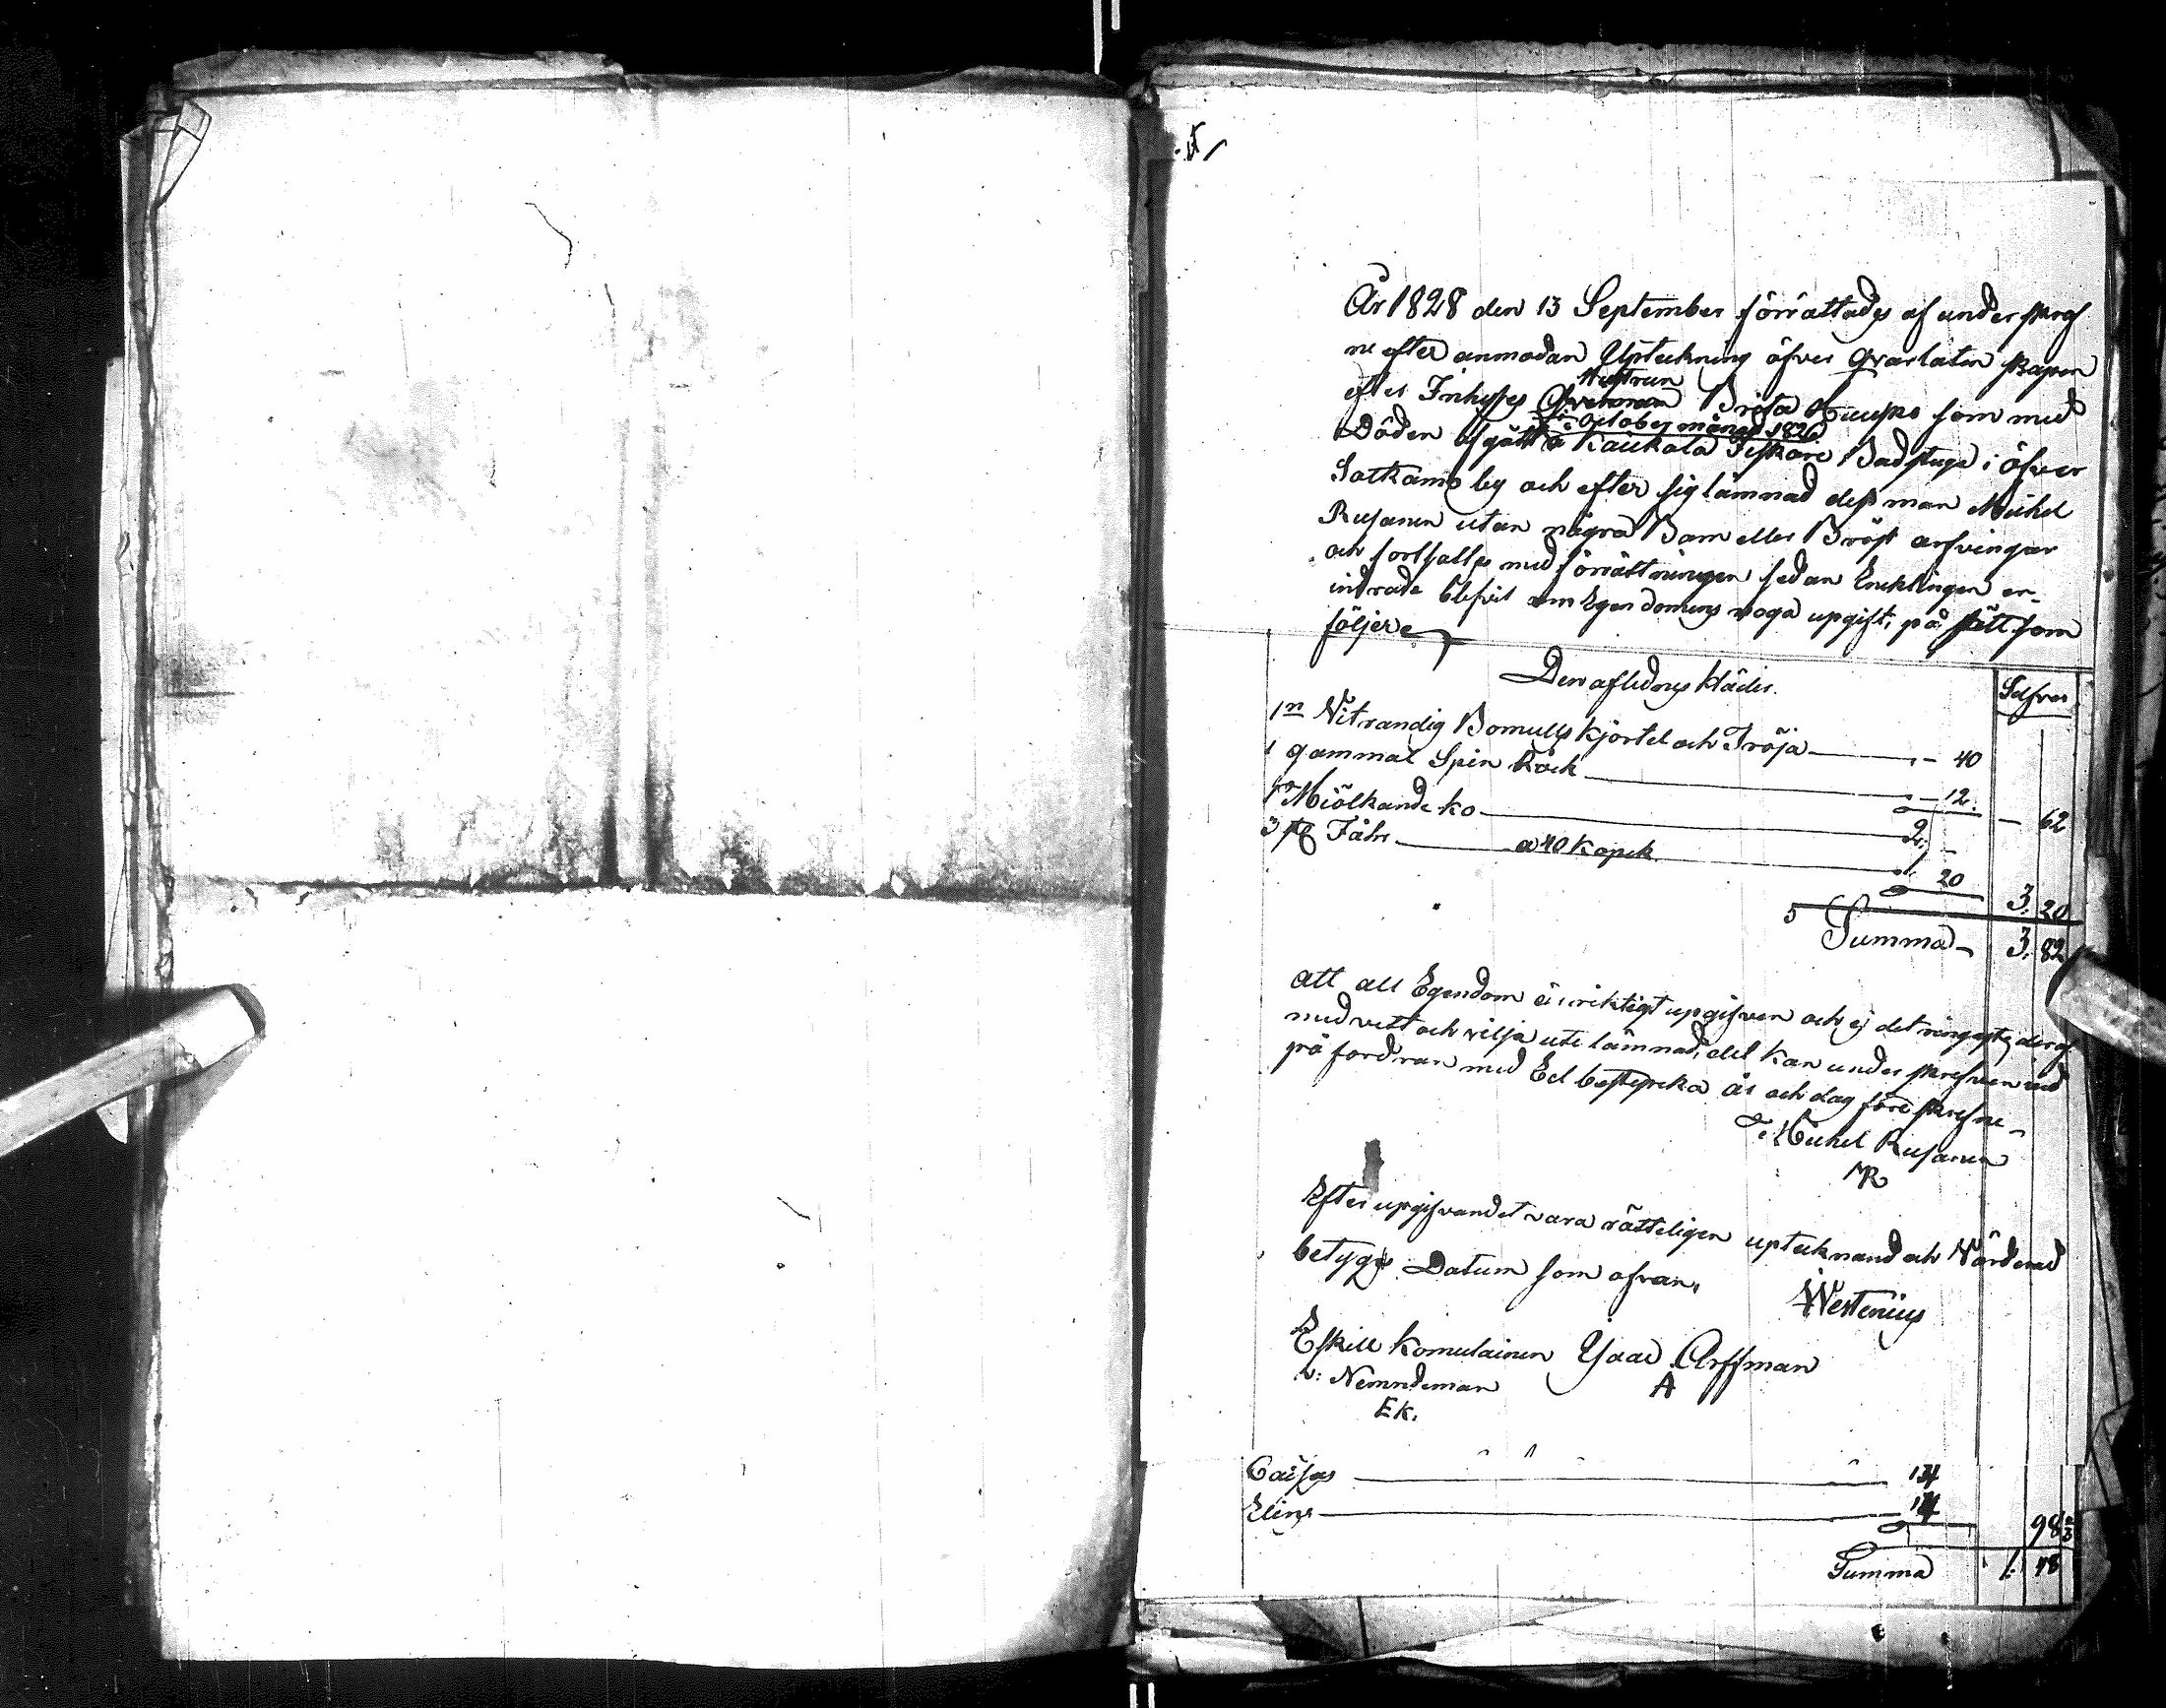 År 1828 den 13 September förrättades af underskref
ne efter anmodan Upteckning öfver qvarlåtenskapen
efter Inhyses Hustrun Brita Kuupo som med
Döden afgått i October månad 1826 å Kaukola Fiskare Badstuga i öfver
Sotkamo by och efter sig lämnad dess man Michel
Rusanen utan några Barn eller Bröst arfvingar
och fortsattes med förrättningen sedan Encklingen er-
indrade blifvit om Egendomens noga upgift, på sätt som
följer
Den aflednes kläder. Silfver
1 n Vitrandig Bomulls kjortel och Tröja - 40
1 gammal Spin Råck - 12. - 62
1 Miölkande ko 2. -
3 st Fåhr a 40 Kopek 1. 20 3. 20
5 Summa - 3. 82
Att all Egendom är riktigt upgifven och ej det ringaste deraf
med vett och vilja ute lämnad, det kan underskrefven vid
på fordran med Ed bestyrcka år och dag föreskrefne -
Michel Rusanen
MR
Efter upgifvandet vara rätteligen uptecknand och Värderad
betyges Datum som ofvan,
Westenius
Eskill Komulainen Isaac Arffman
v: Nämndeman A
EK.
Caisas 14
Elins 14
98 2/3
Summa 1. 48